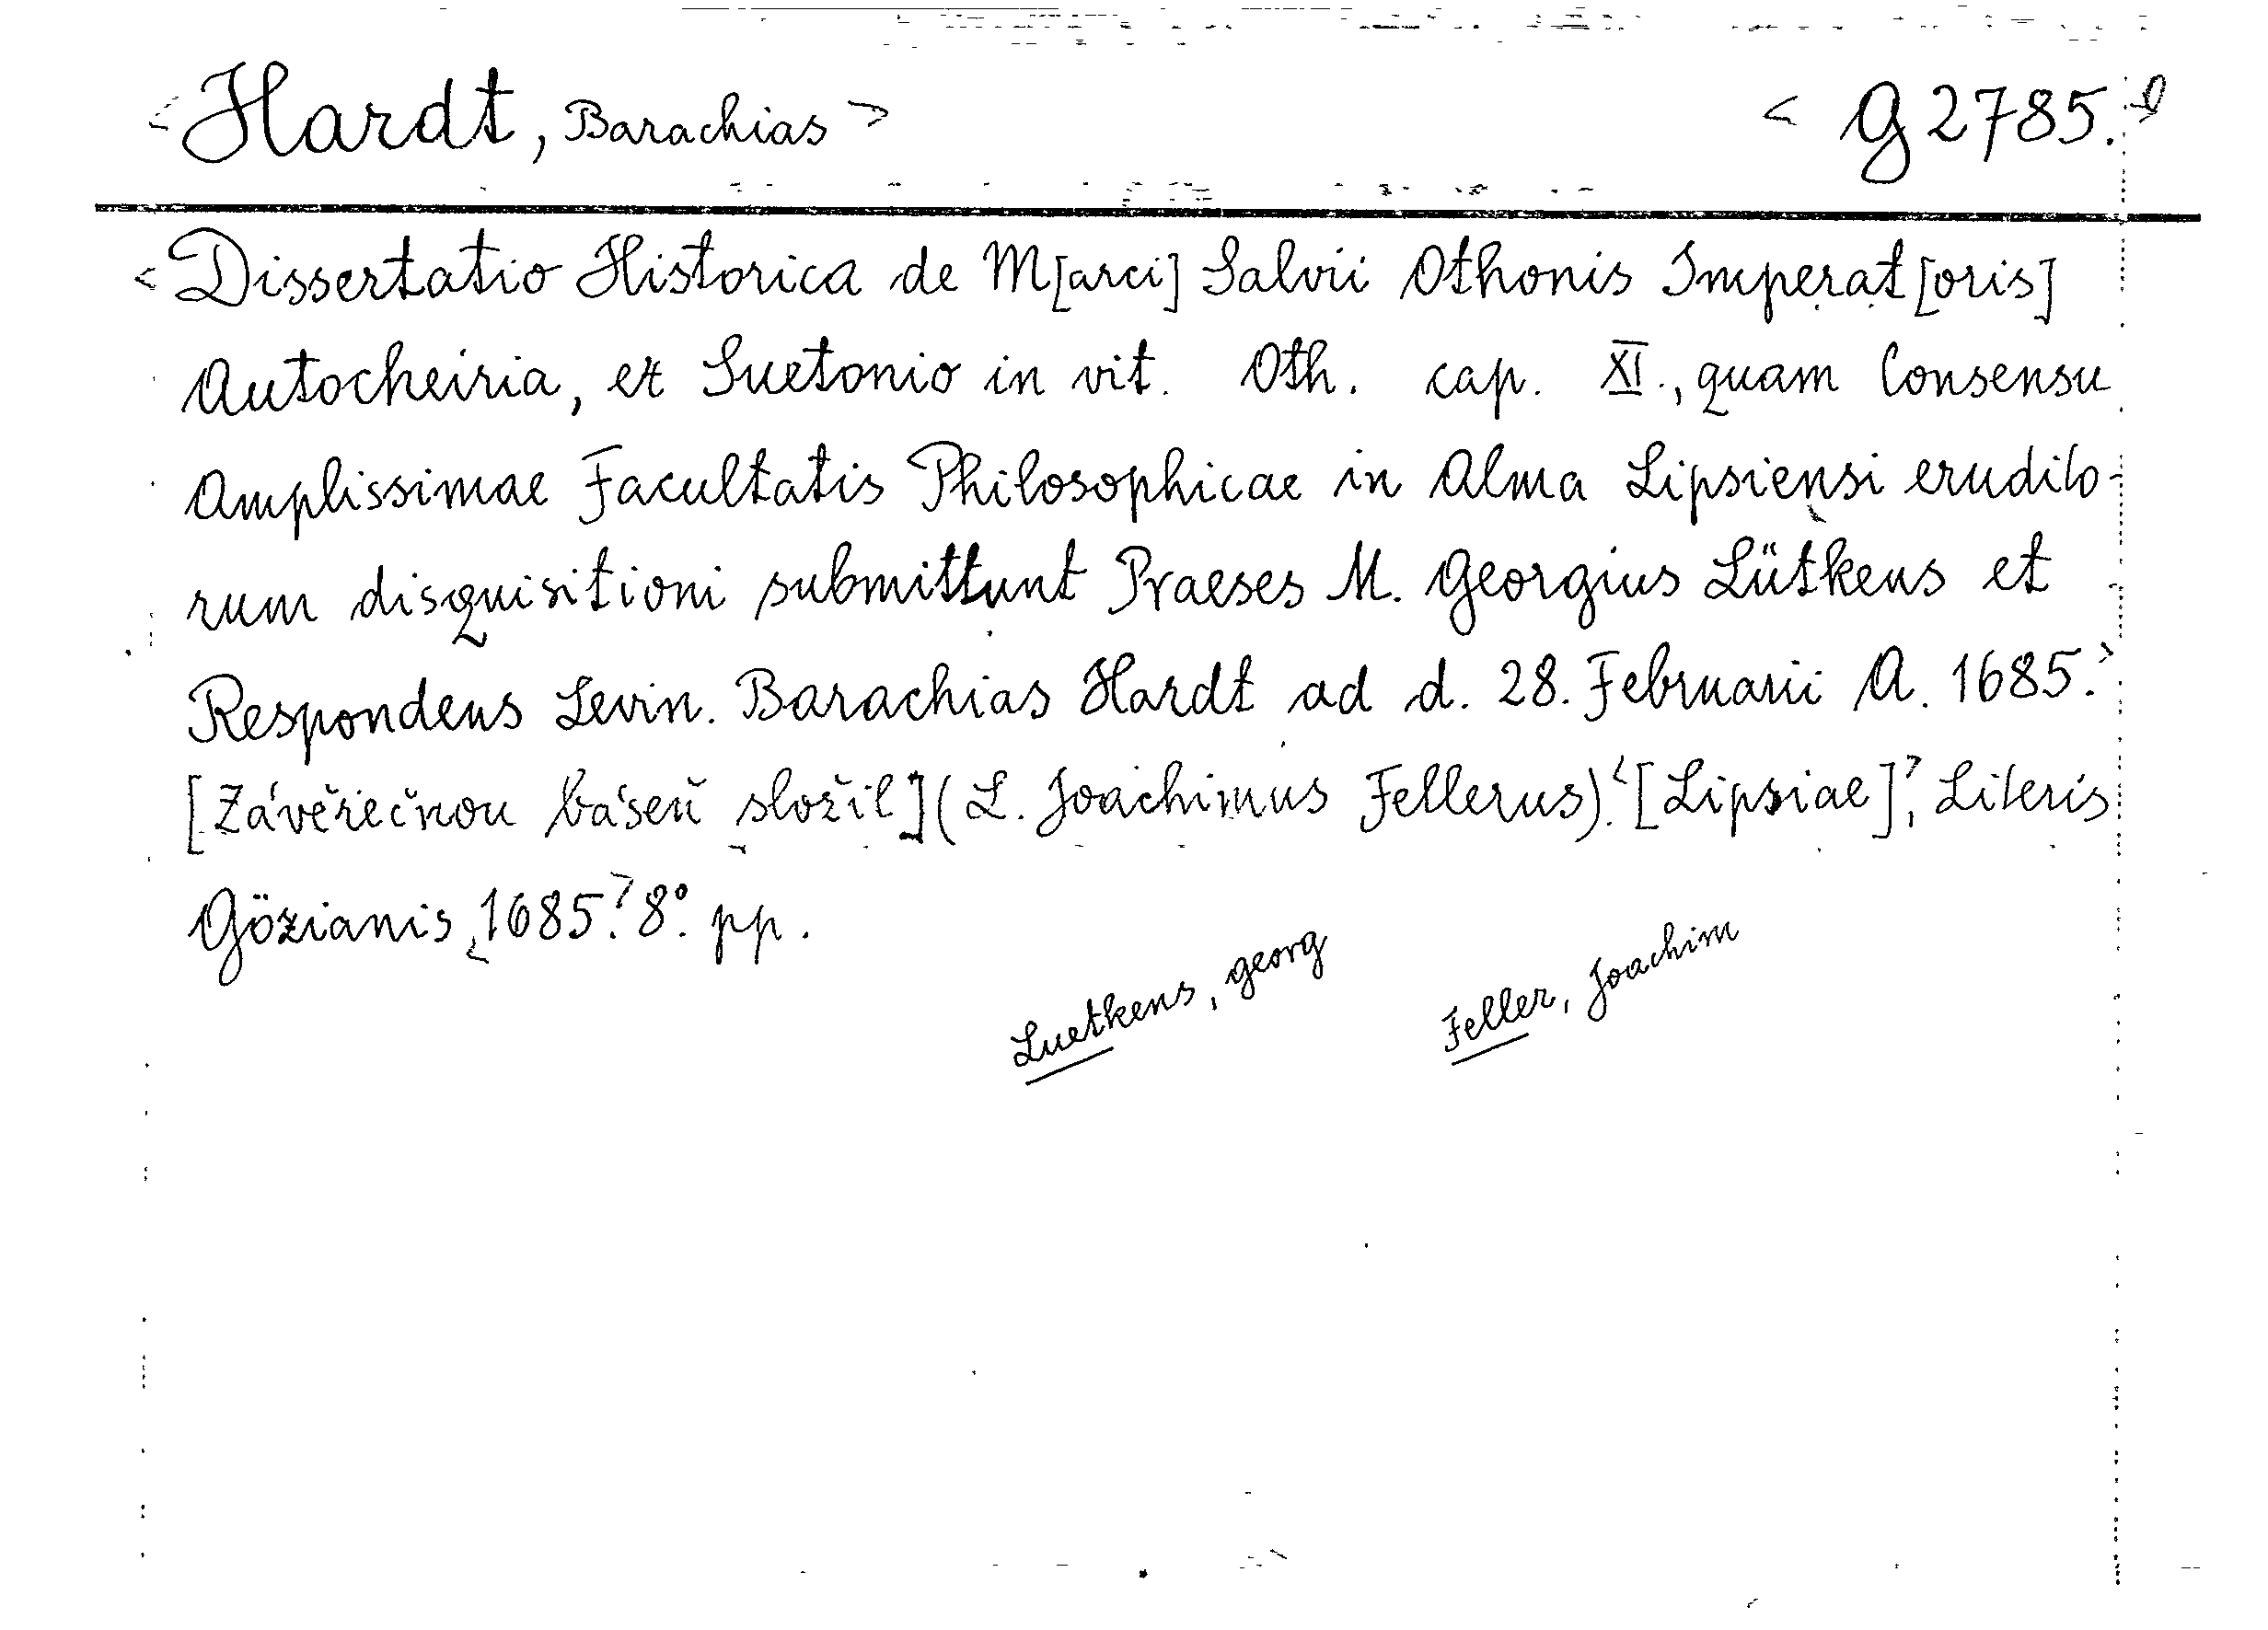 <Hardt, Barachias> <G 2785.>
<Dissertatio Historica de M[arci] Salvii Othonis Imperat[oris]
Autocheiria, ex Suetonio in vit. Oth. cap. XI., quam Consensu
Amplissimae Facultatis Philosophicae in Alma Lipsiensi erudito-
rum disquisitioni submittunt Praeses M. Georgius Lütkens et
Respondens Levin. Barachias Hardt ad d. 28. Februarii A. 1685.>
[Závěřečnou báseň složil] (L. Joachimus Fellerus). <[Lipsiae]>, Literis
Gözianis, <1685.> 8°. pp.
Luetkens, Georg
Feller, Joachim